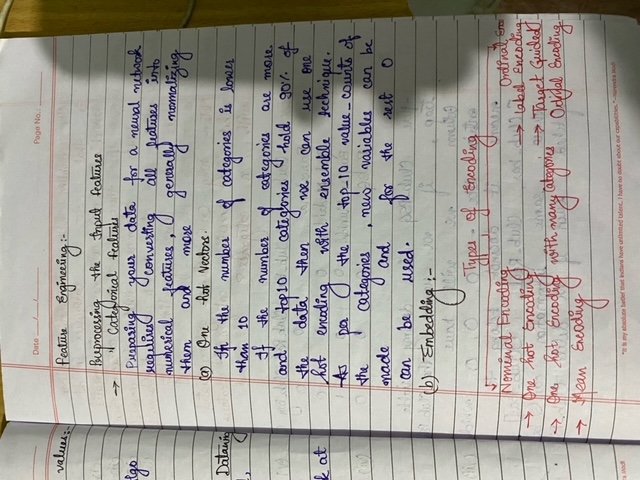 values:-
algo
Dataring
k at
Date ___/___/___
Page No.:
Feature Engineering:-
Preprocessing the Input features
→ Categorical features
Preparing your data for a neural network
requires converting all features into
numerical features, generally normalizing
them and more
(a) One hot Vectors.
If the number of categories is lower
than 10
If the number of categories are more.
and top10 categories hold 90% of
the data then we can use one
hot encoding with ensemble technique.
As per the top-10 value_counts of
the categories, new variables can be
made and for the rest 0
can be used.
(b) Embedding:-
Types of Encoding
Nominal Encoding
→ One hot Encoding
→ One hot Encoding with many Categories
→ Mean Encoding
Ordinal Enc
→ Label Encoding
→ Target Guided
Ordinal Encoding
"It is my absolute belief that Indians have unlimited talent. I have no doubt about our capabilities." -Narendra Modi